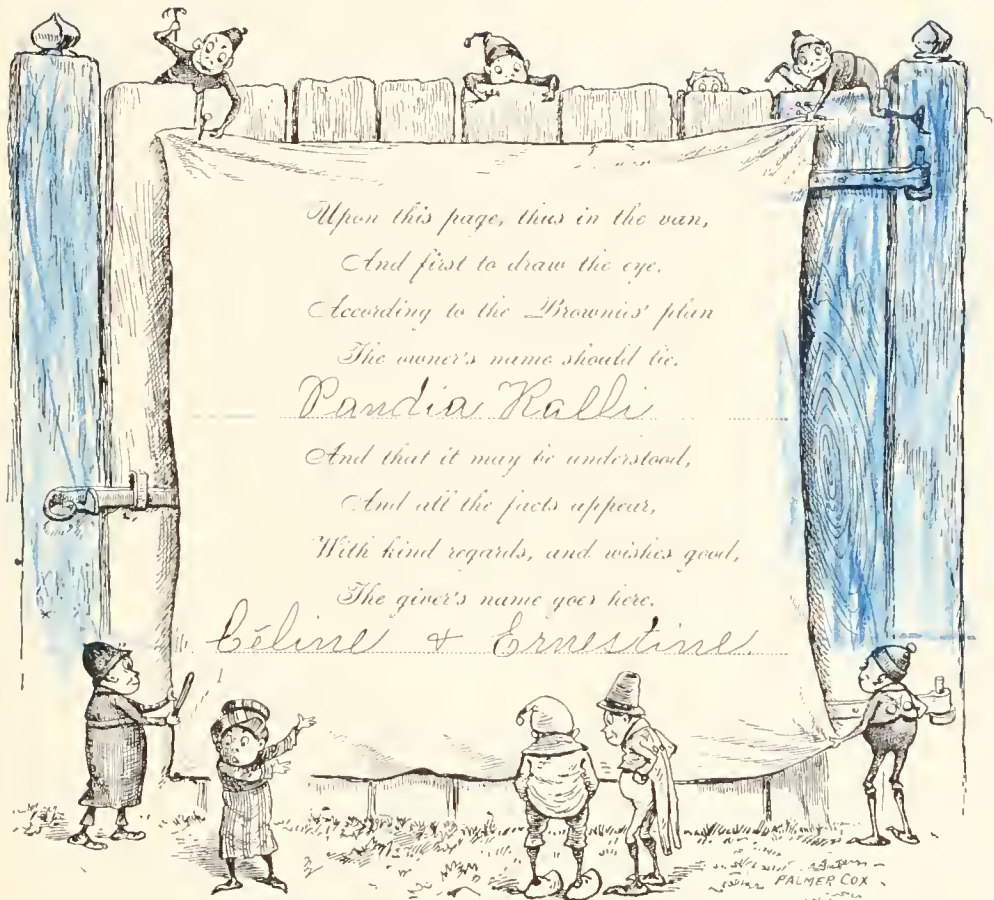 Upon this page, thus in the van,
And first to draw the eye,
According to the Brownies' plan
The owner's name should lie.
Pandia Ralli
And that it may be understood,
And all the facts appear,
With kind regards, and wishes good,
The giver's name goes here.
Céline & Ernestine.
PALMER COX